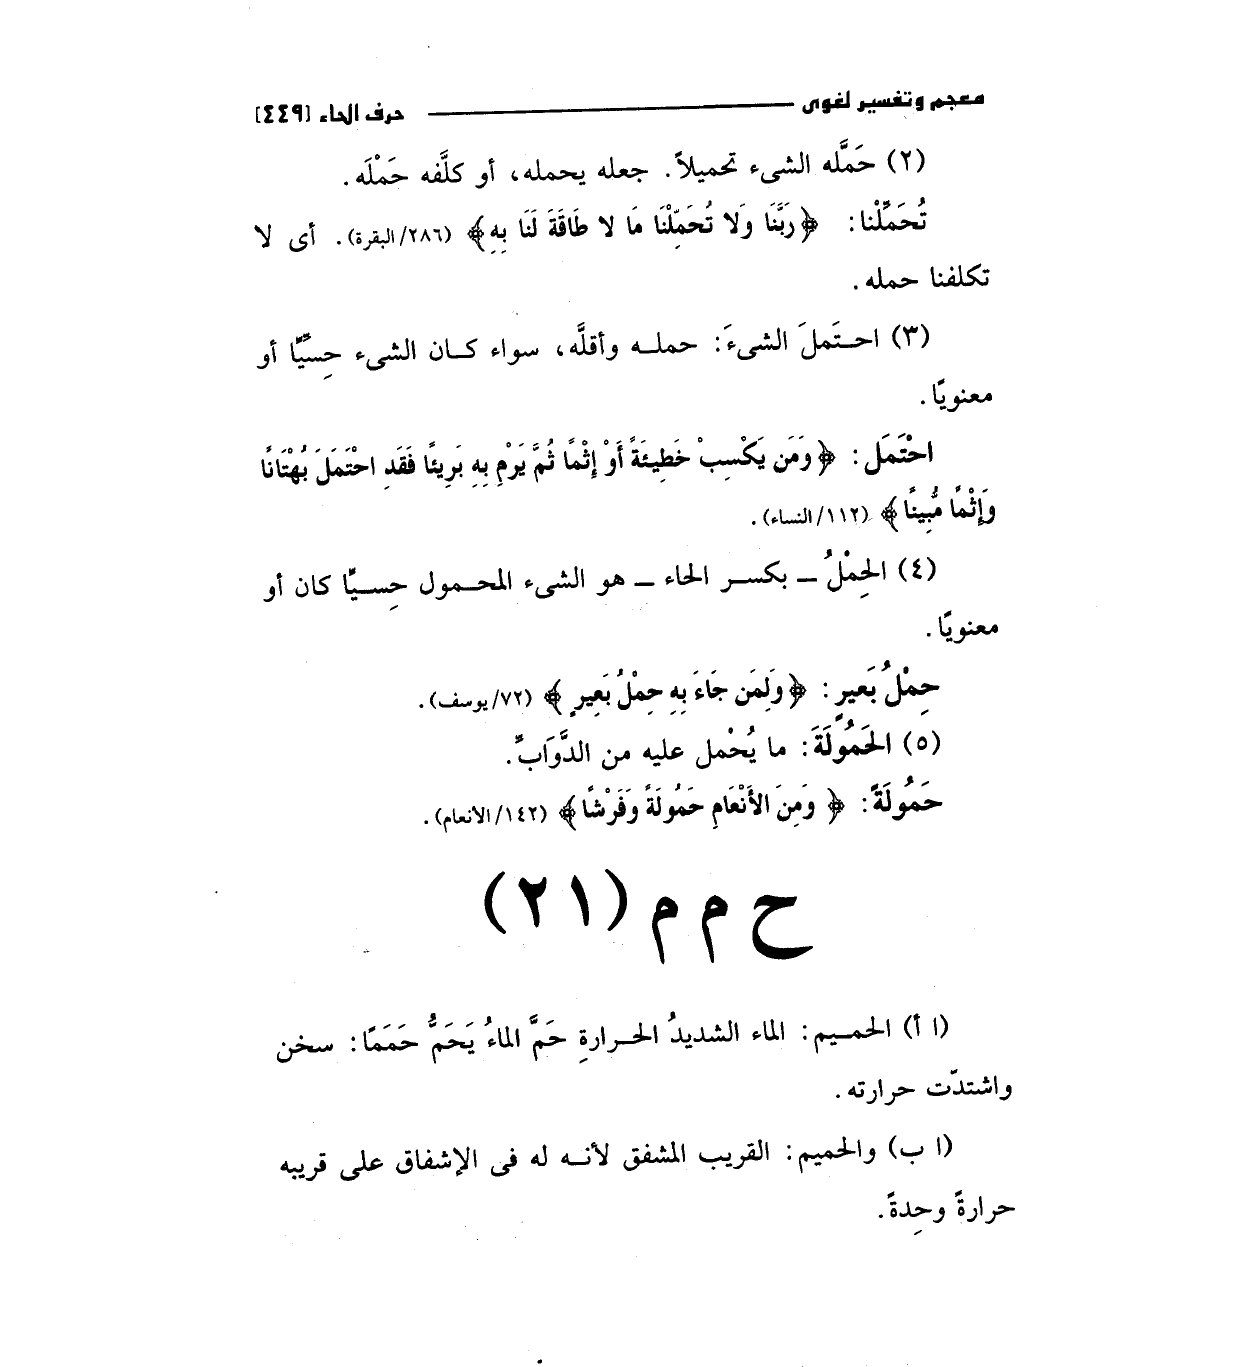 معجم وتفسير لغوى ــــــــــــ حرف الحاء [٤٤٩]
(٢) حَمَّله الشىء تحميلاً. جعله يحمله، أو كلَّفه حَمْلَه.
تُحَمِّلْنا: ﴿رَبَّنَا وَلا تُحَمِّلْنَا مَا لا طَاقَةَ لَنَا بِهِ﴾ (٢٨٦/البقرة). أى لا
تكلفنا حمله.
(٣) احتَملَ الشىءَ: حمله وأقلَّه، سواء كان الشىء حِسِّيًّا أو
معنويًا.
احْتَمَل: ﴿وَمَن يَكْسِبْ خَطِيئَةً أَوْ إِثْمًا ثُمَّ يَرْمِ بِهِ بَرِيئًا فَقَدِ احْتَمَلَ بُهْتَانًا
وَإِثْمًا مُّبِينًا﴾ (١١٢/النساء).
(٤) الحِمْلُ ــ بكسر الحاء ــ هو الشىء المحمول حِسيًّا كان أو
معنويًا.
حِمْلُ بَعيرٍ: ﴿وَلِمَن جَاءَ بِهِ حِمْلُ بَعِيرٍ﴾ (٧٢/يوسف).
(٥) الحَمُولَةَ: ما يُحْمل عليه من الدَّوَابِّ.
حَمُولَةً: ﴿وَمِنَ الأَنْعَامِ حَمُولَةً وَفَرْشًا﴾ (١٤٢/الأنعام).
ح م م (٢١)
(١ أ) الحميم: الماء الشديدُ الحرارةِ حَمَّ الماءُ يَحَمُّ حَمَمًا: سخن
واشتدّت حرارته.
(١ ب) والحميم: القريب المشفق لأنه له فى الإشفاق على قريبه
حرارةً وحِدةً.